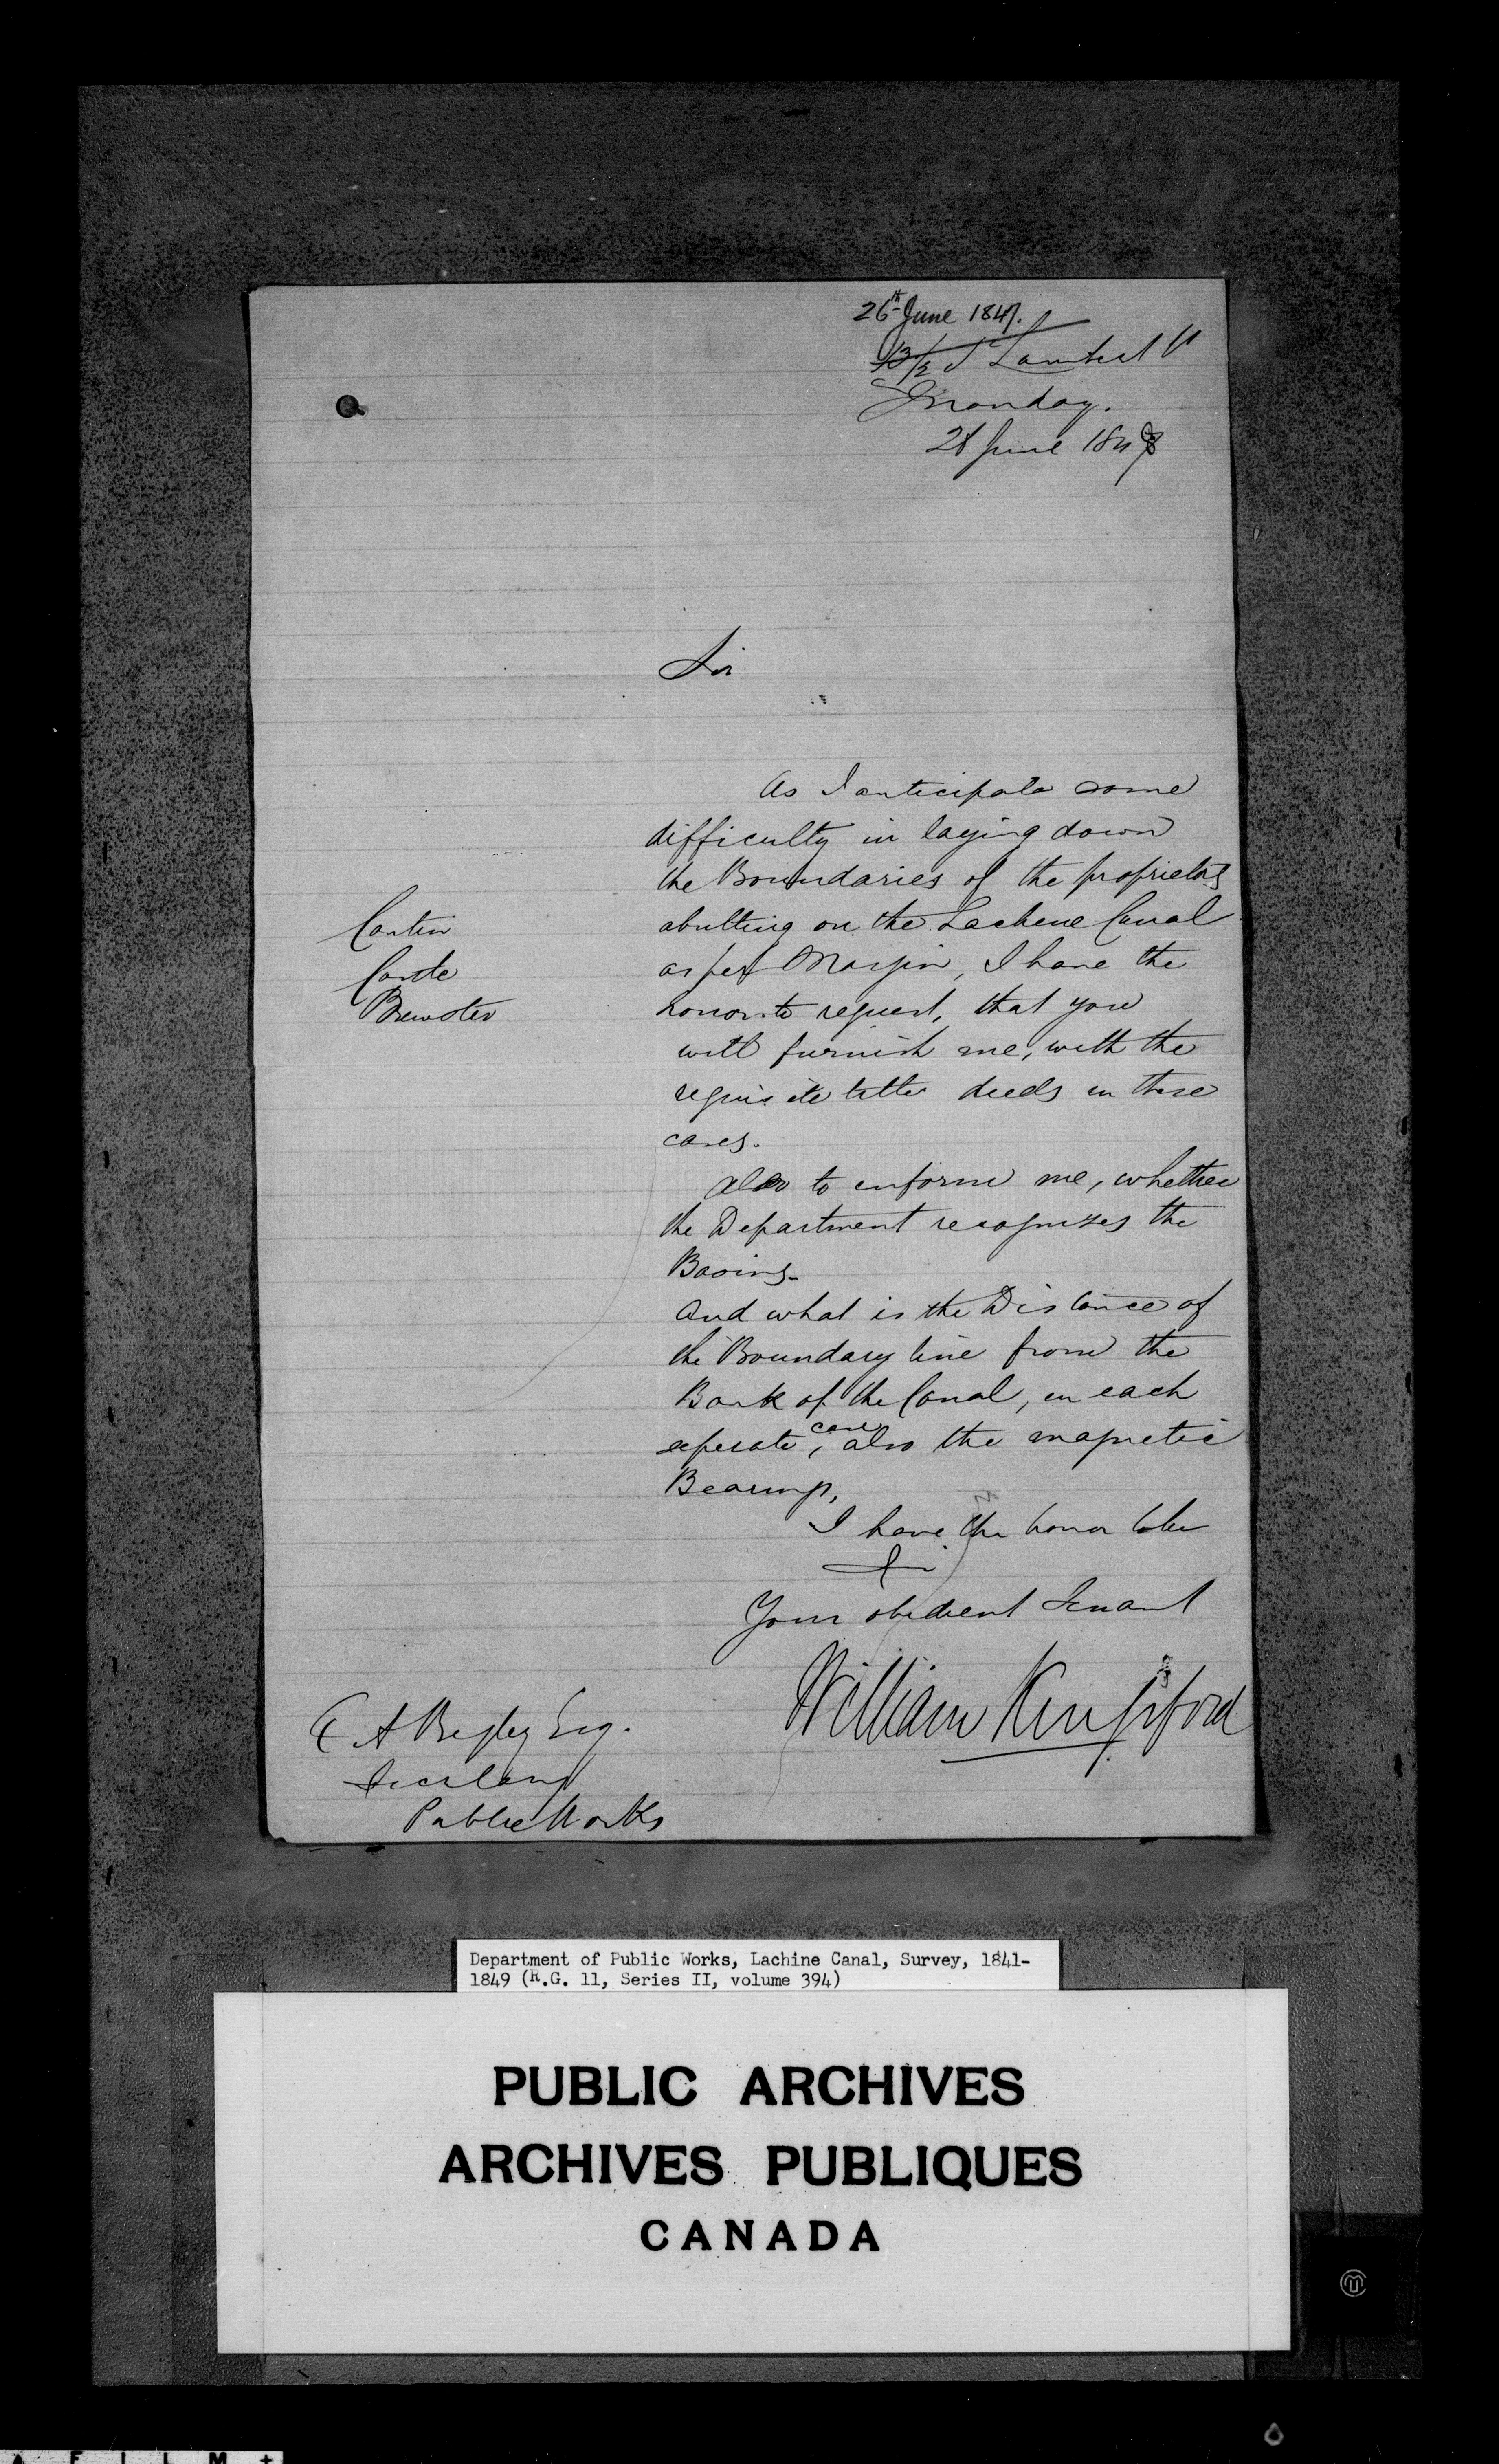 26th June 1847.
13/2 St Lambert St
Monday.
28 June 1847
Sir
As I anticipate some
difficulty in laying down
the Boundaries of the proprietors
Cantin
abutting on the Lachine Canal
as per Margin, I have the
Brewster
honor to request, that you
will furnish me, with the
requisite title deeds in these
cases.
Also to inform me, whether
the Department recognizes the
Basins.
And what is the Distance of
the Boundary line from the
Bank of the Canal, in each
seperate case, also the magnetic
Bearings,
I have the honor to be
Sir
Your obedient Servant
William Kingsford
Begley Esq.
Secretary
Public Works
Department of Public Works, Lachine Canal, Survey, 1841-
1849 (R.G. 11, Series II, volume 394)
PUBLIC ARCHIVES
ARCHIVES PUBLIQUES
CANADA